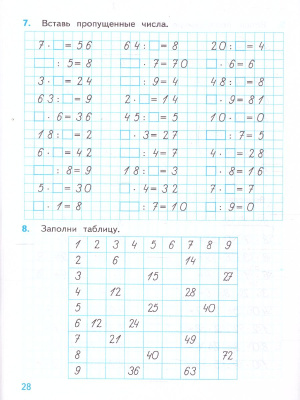 7. Вставь пропущенные числа.
7 · □ = 56 64 : □ = 8 20 : □ = 4
□ : 5 = 8 □ · 7 = 70 □ · 6 = 6
3 · □ = 24 □ : 9 = 4 48 : □ = 8
63 : □ = 9 2 · □ = 14 □ · 9 = 81
□ · 6 = 36 45 : □ = 5 10 · □ = 0
18 : □ = 2 □ · 3 = 27 □ : 7 = 5
6 · □ = 42 □ : 4 = 7 4 · □ = 28
□ : 8 = 9 18 : □ = 3 □ · 8 = 16
5 · □ = 30 □ · 4 = 32 7 · □ = 7
□ · 1 = 8 □ : 7 = 10 □ : 9 = 0
8. Заполни таблицу.
1 2 3 4 5 6 7 8 9
2 6 14
3 15 27
4 12 28
5 25 40
6 12 24
7 21 49
8 40 72
9 36 63
28